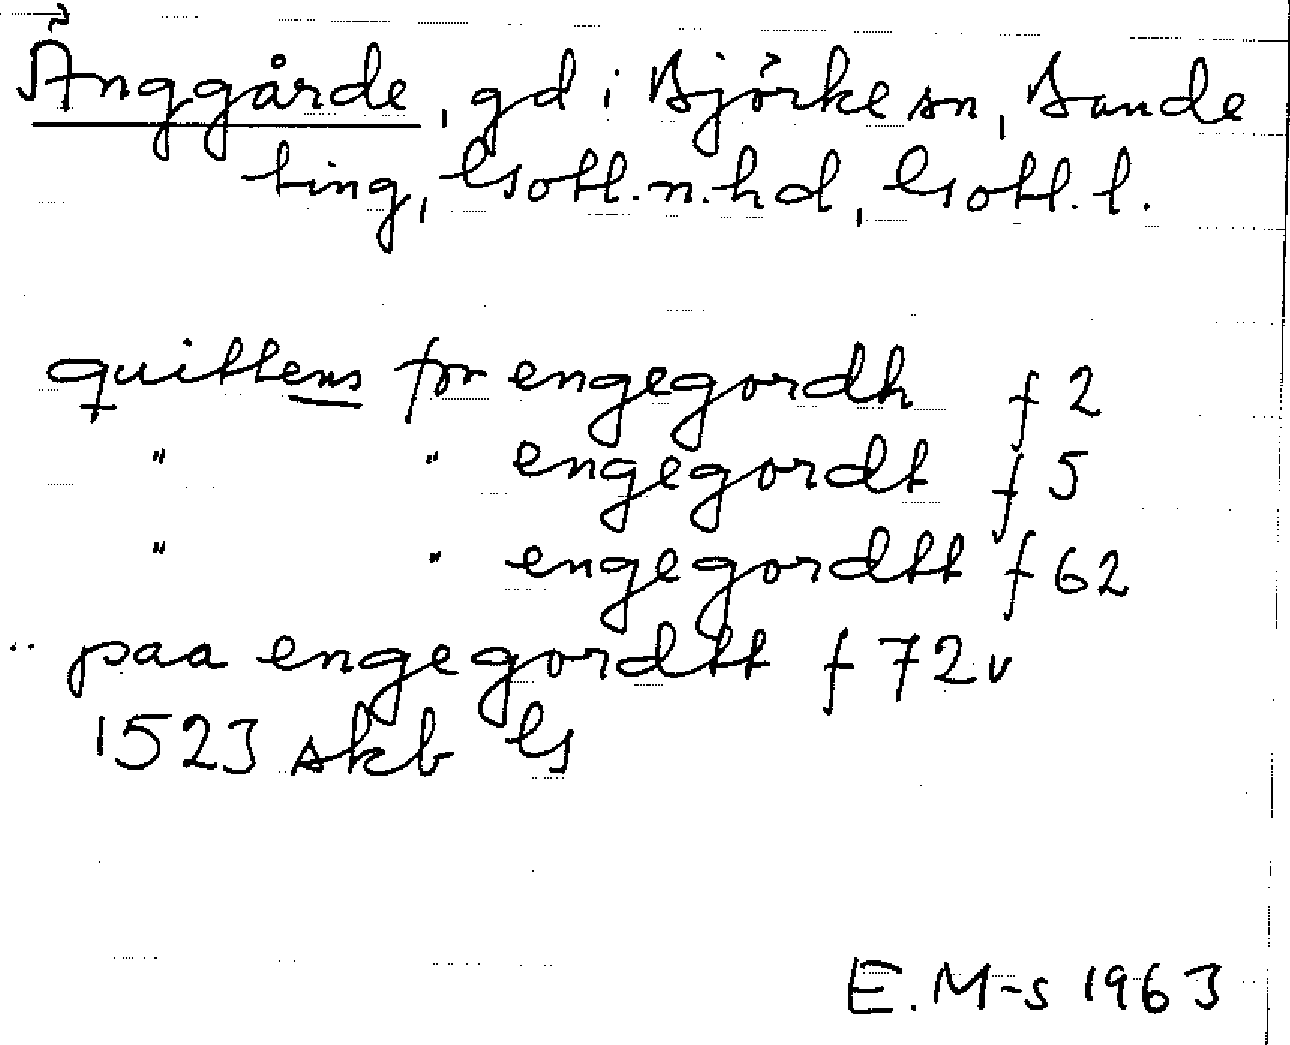 Änggårde, gd i Björke sn, Bande
ting, Gotl. n. hd, Gotl. l.
quittens for engegordh f 2
" " engegordt f 5
" " engegordtt f 62
.. paa engegordtt f 72v
1523 skb G
E. M-s 1963